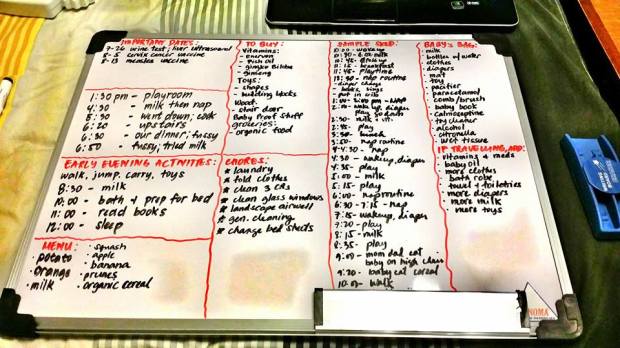 IMPORTANT DATES:
7-26 urine test, liver ultrasound
8-5 cervix cancer vaccine
8-13 measles vaccine
1:30 pm - playroom
4:30 - milk then nap
5:30 - went down, cook
6:20 - upstairs
6:20 - our dinner; fussy
6:50 - fussy; tried milk
EARLY EVENING ACTIVITIES:
walk, jump, carry, toys
8:30 - milk
10:00 - bath + prep for bed
11:00 - read books
12:00 - sleep
MENU:
• potato
• orange
• milk
• squash
• apple
• banana
• prunes
• organic cereal
TO BUY:
Vitamins:
- fish oil
- ginkgo biloba
- ginseng
Toys:
- shapes
- building blocks
Wood:
- stair door
Baby Proof Stuff
groceries:
- organic food
CHORES:
* laundry
* fold clothes
* clean 3 CRs
* clean glass windows
* landscape airwell
* gen. cleaning
* change bed sheets
SAMPLE SKED:
10:00 - wake up
11:15 - breakfast
11:45 - playtime
- nap routine
diaper change
books, sings
put in crib
- NAP
wake up, diaper
2:45 - play
3:30 - lunch
3:50 - nap routine
4:30 - wakeup, diaper
4:35 - play
5:00 - milk
5:15 - play
6:00 - nap routine
6:30 - 7:15 - nap
7:15 - wakeup, diaper
7:20 - play
8:15 - milk
8:35 - play
9:00 - mom dad eat
baby on high chair
9:20 - baby eat cereal
10:00 - walk
BABY'S BAG:
- milk
- bottles w/ water
- clothes
- diapers
- mat
- toy
- pacifier
- paracetamol
- comb/brush
- baby book
- calmoseptine
- toy cleaner
- alcohol
- citronella
- wet tissue
IF TRAVELLING, ADD:
- vitamins & meds
- baby oil
- more clothes
- bath robe
- towel + toiletries
- more diapers
- more milk
- more toys
NOMA